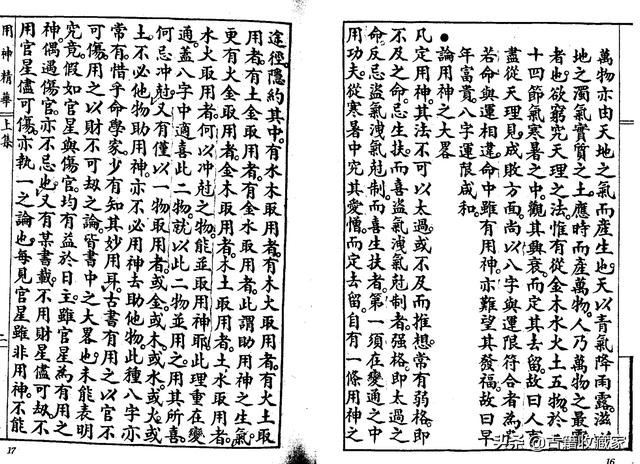 萬物亦由天地之氣而產生也天以青氣降雨露滋
地之濁氣實質之土應時而產萬物人乃萬物之最靈
者也欲窮究天理之法惟有從金木水火土五物於
十四節氣寒暑之中觀其興衰而定其去留故曰人事
盡從天理見成敗方面尚以八字與運限符合者為
若命與運相違命中雖有用神亦難望其發福故曰早
年富貴八字運限咸和
●論用神之大畧
凡定用神其法不可以太過或不及而推想常有弱格即
不及之命忌生扶而喜盜氣洩氣尅制者強格即太過之
命反忌盜氣洩氣尅制而喜生扶者第一須在變通之中
用功夫從寒暑中究其愛憎而定去留自有一條用神之
16
途徑隱約其中有水木取用者有木火取用者有火土取
用者有土金取用者有金水取用者此謂助用神之生氣
更有火金取用者金木取用者木土取用者土水取用者
水火取用者何以冲尅之物能並取用神耶此理重在變
通蓋八字中適喜此二物就以此二物並用之用其所喜
何忌冲尅又有僅以一物取用者或金或木或水或火或
土不必他物助用神亦不必用神去助他物此種八字亦
常有惜乎命學家少有知其妙用耳古書有用之以官不
可傷用之以財不可刧之論皆書中之大畧也未能表明
究竟假如官星與傷官均有益於日主雖官星為有用之
神偶遇傷官亦不忌也又有某書載不用財星儘可刧不
用官星儘可傷亦執一之論也每見官星雖非用神不能
用神精華 上集
二
17
头条 @古籍收藏家